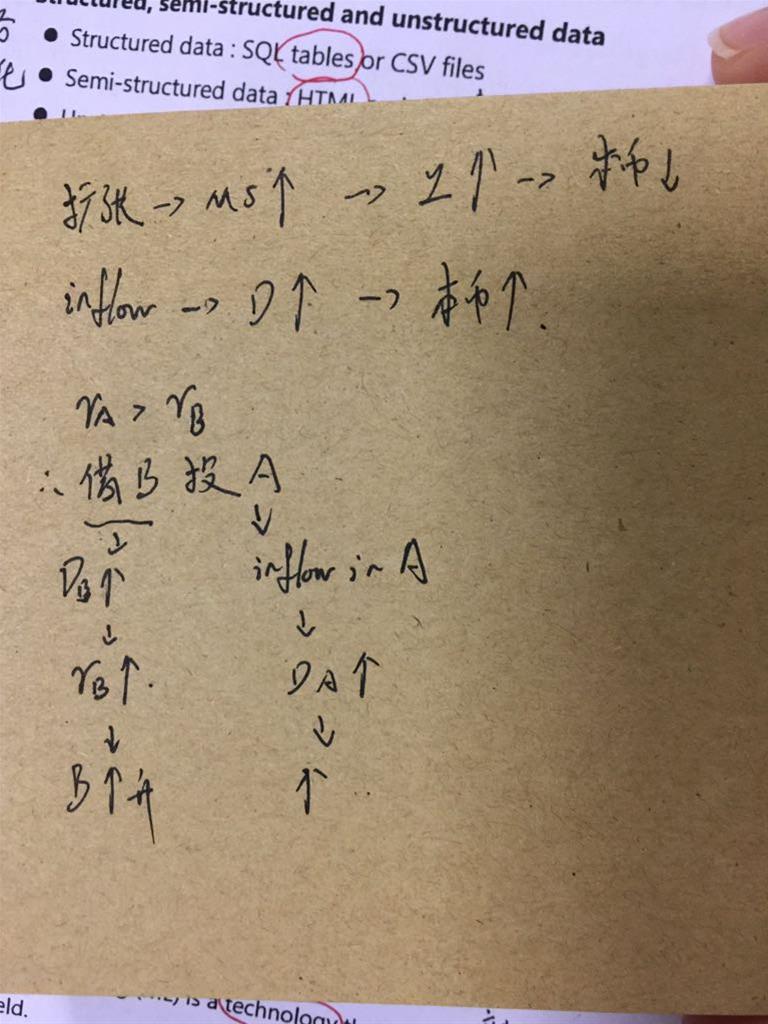 structured, semi-structured and unstructured data
● Structured data : SQL tables or CSV files
● Semi-structured data : HTML
扩张 → MS↑ → I↑ → 本币↓
inflow → D↑ → 本币↑.
rA > rB
∴ 借B 投 A
↓ ↓
DB↑ inflow in A
↓ ↓
rB↑. DA↑
↓ ↓
B↑升 ↑
eld. is a technology